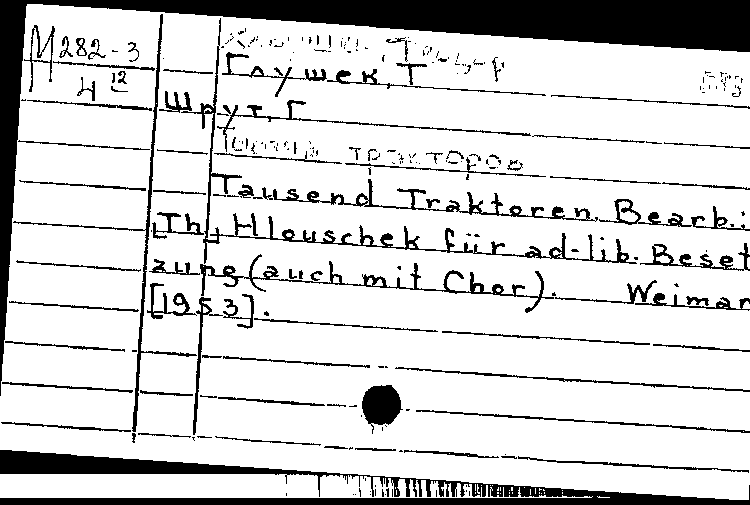 М 282-3
4 12
Глушек, Т
Шрут, Г
тракторов
Tausend Traktoren. Bearb.:
[Th.] Hlouschek für ad-lib. Beset
zung (auch mit Chor). Weimar
[1953].